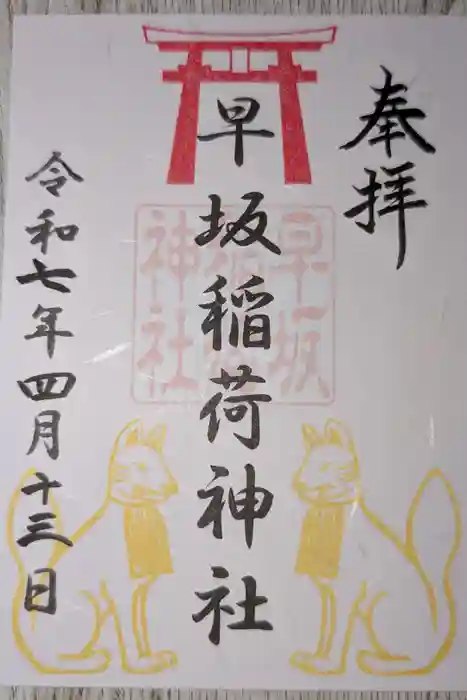 奉拝
早坂稲荷神社
令和七年四月十三日
早坂
稲荷
神社